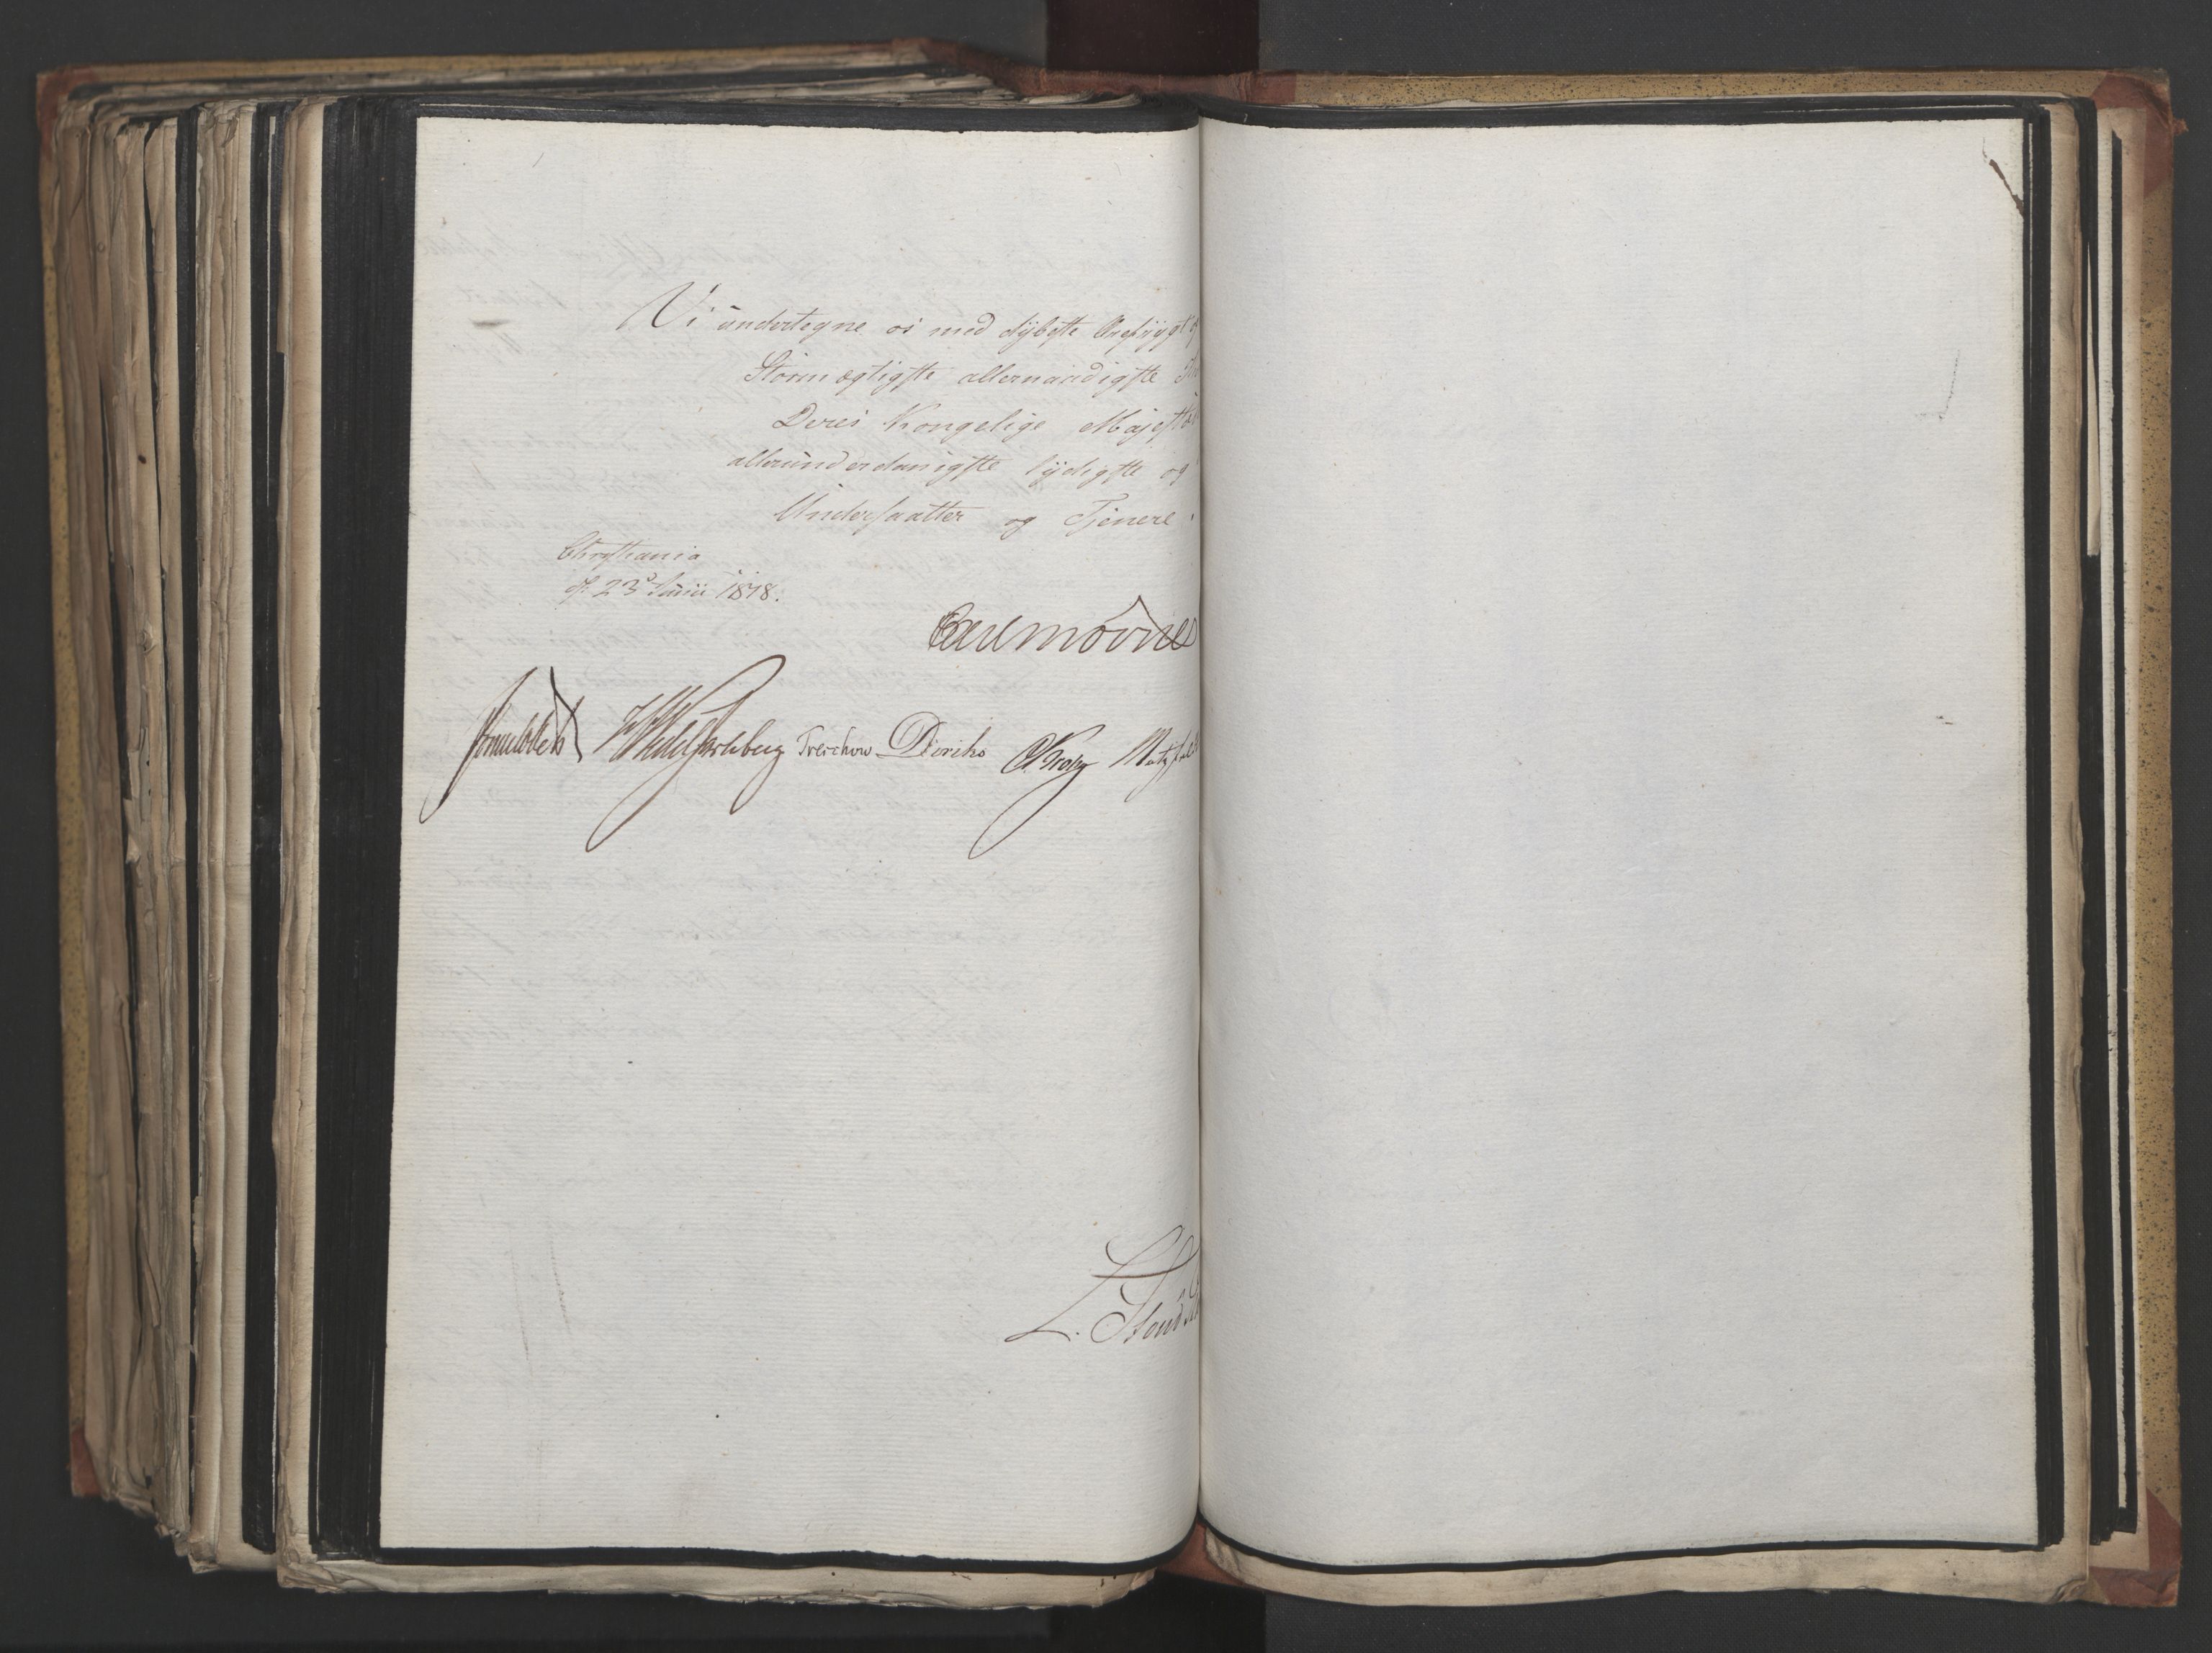 Vi undertegne os med dybeste Ærefrygt
Stormægtigste allernaadigste
Deres Kongelige Majestæts
allerunderdanigste lydigste og
Undersaatter og Tjenere.
Christiania
d. 23d Junii 1818.
Carl Mörner
Sommehielm
Wedel Jarlsberg Treschow Diriks CKrohg Motzfeldt
L. Stoud